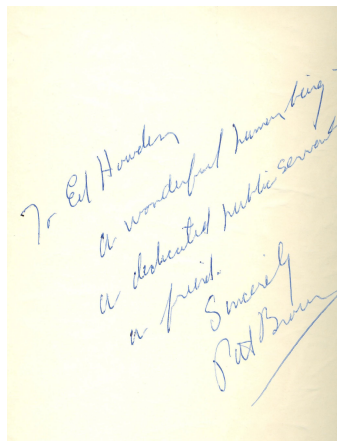 To Ed Howden
a wonderful human being -
a dedicated public servant
a friend.
Sincerely
Pat Brown